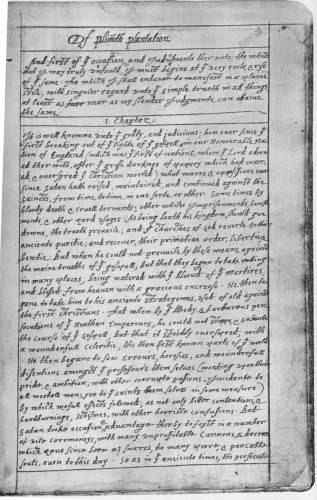 Of plimoth plantation.
And first of yᵉ occasion, and Indusments ther unto; the which
that I may truly unfould, I must begine at yᵉ very roote, & rise
of yᵉ same. The which I shall endevor to manefest in a plaine
stile, with singuler regard unto yᵉ simple trueth in all things,
at least as far near as my slender Judgmente can attaine
the same.
1. Chapter
It is well knowne unto yᵉ godly, and judicious, how ever since yᵉ
first breaking out of yᵉ lighte of yᵉ gospell in our Honourable Na-
tion of England (which was yᵉ first of nations, whom yᵉ Lord adorn-
ed ther with, affter yᵗ grosse darknes of popery which had cover-
ed, & overspred yᵉ christian worled) what warrs, & opposissions ever
since satan hath raised, maintained, and continued against the
saincts, from time, to time, in one sorte, or other. Some times by
bloody death & cruell torments; other whiles Imprisonments, banish-
ments, & other hard usages. As being loath his kingdom should goe
downe, the trueth prevaile; and yᵉ Churches of god reverte to their
anciente puritie; and recover, their primative order, libertie, &
bewtie. But when he could not prevaile by these means, against
the maine trueths of yᵉ gospell, but that they began to take rooting
in many places; being watered with yᵉ blood of yᵉ martires,
and blessed from heaven with a gracious encrease. He then be-
gane to take him to his anciente strategemes, used of old against
the first Christians. That when by yᵉ bloody, & barbarous per-
secutions of yᵉ Heathen Emperours, he could not stoppe, & subverte
the course of yᵉ gospell; but that it speedily overspred, with
a wounderfull celeritie, the then best known parts of yᵉ world.
He then begane to sow errours, heresies, and wounderfull
disentions amongst yᵉ professours them selves (working upon their
pride, & ambition, with other corrupte passions, Incidente to
all mortall men; yea to yᵉ saints them selves in some measure)
by which wofull effects followed; as not only bitter contentions, &
hartburnings, schismes, with other horrible confusions. But
satan tooke occasion & advantage therby to foyst in a number
of vile ceremoneys, with many unproffitable Cannons, & decrees
which have since been as snares, to many poore, & peaceable
souls, even to this day. So as in yᵉ anciente times, the persecuti-